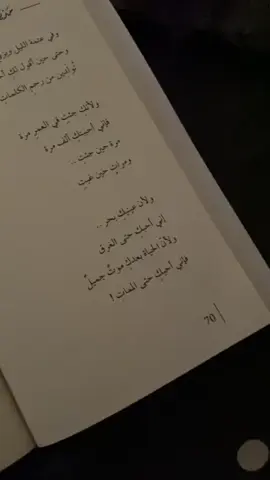 وفي عتمة الليل
وحتى حين أقول لك
تُولدين من رحم الكلمات
ولأنّك جئتِ في العمر مرة
فإنّي أحببتكِ ألف مرة
مرة حين جئتِ ..
ومراتٍ حين غبتِ
ولأن عينيكِ بحر ..
إنّي أحبكِ حتى الغرق
ولأنّ الحياة بعدكِ موتٌ جميلٌ
فإنّي أحبكِ حتى الممات !
70